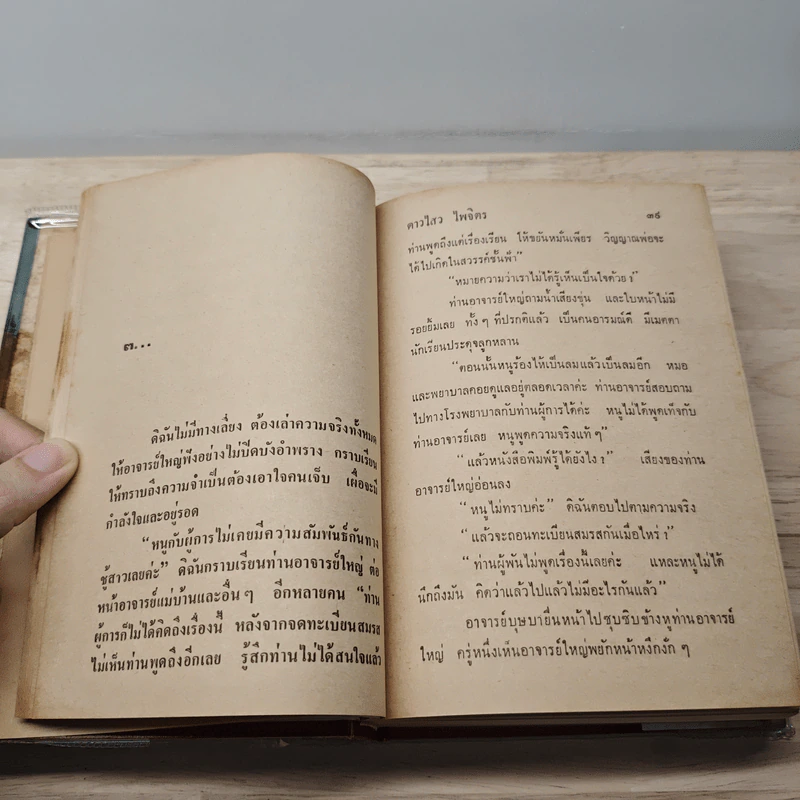 ๓...
ดิฉันไม่มีทางเลี่ยง ต้องเล่าความจริงทั้งหมด
ให้อาจารย์ใหญ่ฟังอย่างไม่ปิดบังอำพราง กราบเรียน
ให้ทราบถึงความจำเป็นต้องเอาใจคนเจ็บ เผื่อจะมี
กำลังใจและอยู่รอด
“หนูกับผู้การไม่เคยมีความสัมพันธ์กันทาง
ชู้สาวเลยค่ะ” ดิฉันกราบเรียนท่านอาจารย์ใหญ่ ต่อ
หน้าอาจารย์แม่บ้านและอื่นๆ อีกหลายคน “ท่าน
ผู้การก็ไม่ได้คิดถึงเรื่องนี้ หลังจากจดทะเบียนสมรส
ไม่เห็นท่านพูดถึงอีกเลย รู้สึกท่านไม่ได้สนใจแล้ว
ดาวไสว ไพจิตร ๓๙
ท่านพูดถึงแต่เรื่องเรียน ให้ขยันหมั่นเพียร วิญญาณพ่อจะ
ได้ไปเกิดในสวรรค์ชั้นฟ้า”
“หมายความว่าเราไม่ได้รู้เห็นเป็นใจด้วย?
ท่านอาจารย์ใหญ่ถามน้ำเสียงขุ่น และใบหน้าไม่มี
รอยยิ้มเลย ทั้งๆ ที่ปรกติแล้ว เป็นคนอารมณ์ดี มีเมตตา
นักเรียนประดุจลูกหลาน
“ตอนนั้นหนูร้องไห้เป็นลมแล้วเป็นลมอีก หมอ
และพยาบาลคอยดูแลอยู่ตลอดเวลาค่ะ ท่านอาจารย์สอบถาม
ไปทางโรงพยาบาลกับท่านผู้การได้ค่ะ หนูไม่ได้พูดเท็จกับ
ท่านอาจารย์เลย หนูพูดความจริงแท้ๆ”
“แล้วหนังสือพิมพ์รู้ได้ยังไง? เสียงของท่าน
อาจารย์ใหญ่อ่อนลง
“หนูไม่ทราบค่ะ” ดิฉันตอบไปตามความจริง
“แล้วจะถอนทะเบียนสมรสกันเมื่อไหร่?
“ท่านผู้พันไม่พูดเรื่องนี้เลยค่ะ แหละหนูไม่ได้
นึกถึงมัน คิดว่าแล้วไปแล้วไม่มีอะไรกันแล้ว”
อาจารย์บุษบายื่นหน้าไปซุบซิบข้างหูท่านอาจารย์
ใหญ่ ครู่หนึ่งเห็นอาจารย์ใหญ่พยักหน้าหงึกงั่กๆ